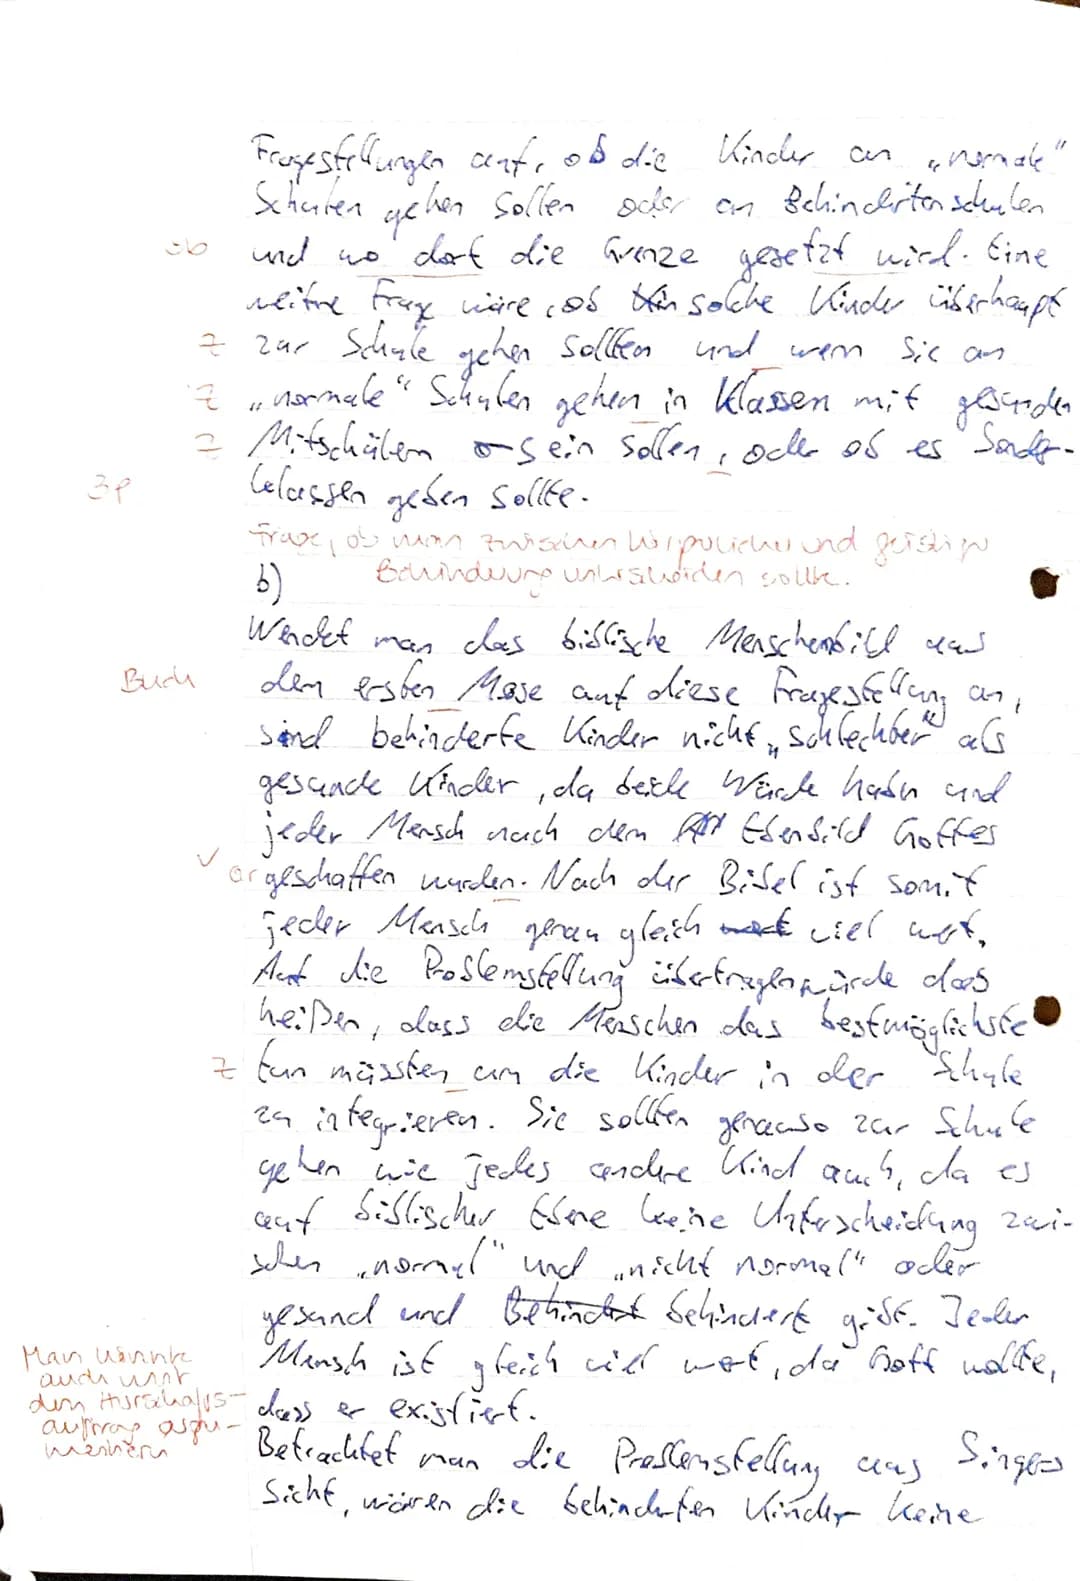 Fragestellungen auf, ob die Kinder an „normale"
Schulen gehen sollen oder an Behindertenschulen
ob und wo dort die Grenze gesetzt wird. Eine
weitre Frage wäre, ob solche Kinder überhaupt
Z zur Schule gehen sollten und wenn sie an
Z „normale" Schulen gehen in Klassen mit gesunden
Z Mitschülern sein sollen, oder ob es Sonder-
3P klassen geben sollte.
Frage, ob man zwischen körperlicher und geistiger
Behinderung unterscheiden sollte.
b)
Wendet man das biblische Menschenbild aus
Buch dem ersten Mose auf diese Fragestellung an,
sind behinderte Kinder nicht „schlechter" als
gesunde Kinder, da beide Würde haben und
jeder Mensch nach dem Ebenbild Gottes
✓ geschaffen wurden. Nach der Bibel ist somit
jeder Mensch genau gleich viel wert.
Auf die Problemstellung übertragen würde das
heißen, dass die Menschen das bestmöglichste
Z tun müssten um die Kinder in der Schule
zu integrieren. Sie sollten genauso zur Schule
gehen wie jedes andere Kind auch, da es
auf biblischer Ebene keine Unterscheidung zwi-
schen „normal" und „nicht normal" oder
gesund und Behindert behindert gibt. Jeder
Mensch ist gleich viel wert, da Gott wollte,
dass er existiert.
Man könnte
auch mit
dem Herrschafts-
auftrag argu-
mentieren
Betrachtet man die Problemstellung aus Singers
Sicht, wären die behinderten Kinder keine